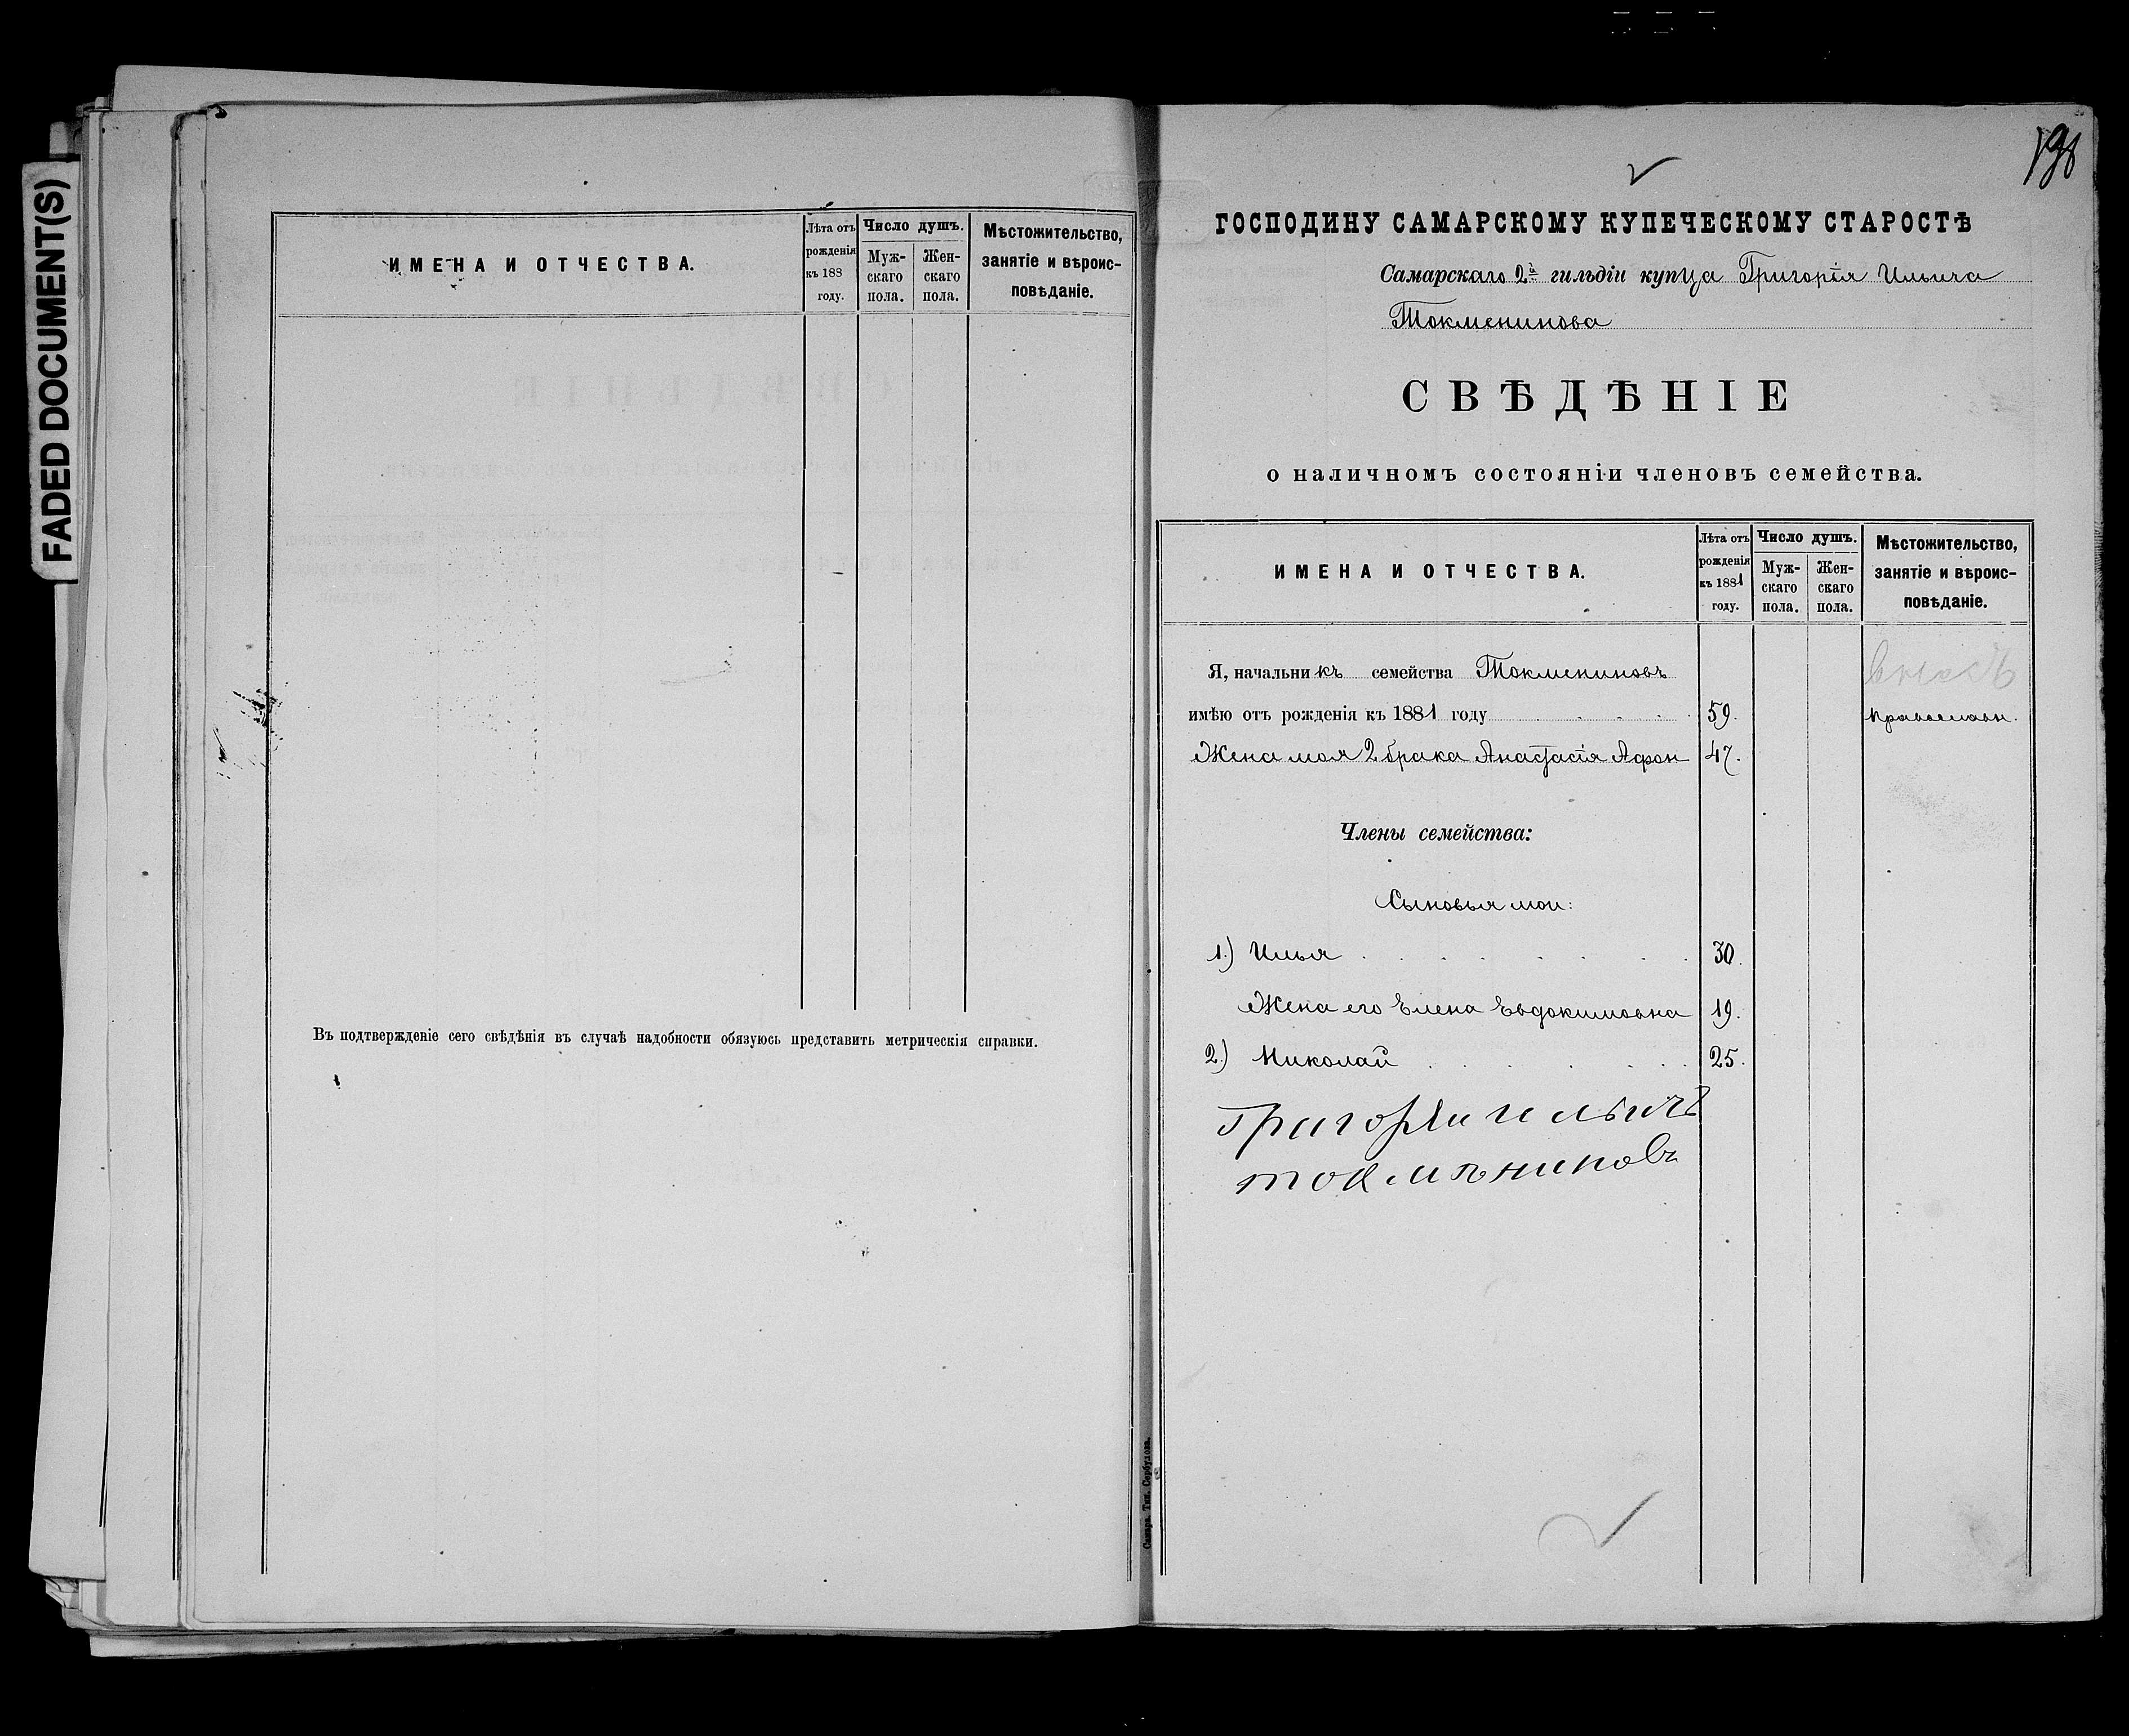 FADED DOCUMENT(S)
ИМЕНА И ОТЧЕСТВА.
Лѣта отъ рожденія къ 188 году.
Число душъ.
Мужскаго пола.
Женскаго пола.
Мѣстожительство, занятіе и вѣроисповѣданіе.
Въ подтвержденіе сего свѣдѣнія въ случаѣ надобности обязуюсь представить метрическія справки.
198
ГОСПОДИНУ САМАРСКОМУ КУПЕЧЕСКОМУ СТАРОСТѢ
Самарскаго 2й гильдіи купца Григорія Ильича
Токменинова
СВѢДѢНІЕ
о наличномъ состояніи членовъ семейства.
ИМЕНА И ОТЧЕСТВА.
Лѣта отъ рожденія къ 1881 году.
Число душъ.
Мужскаго пола.
Женскаго пола.
Мѣстожительство, занятіе и вѣроисповѣданіе.
Я, начальникъ семейства Токмениновъ
имѣю отъ рожденія къ 1881 году 59. православн.
Жена моя 2 брака Анастасія Афон 47.
Члены семейства:
Сыновья мои:
1.) Илья 30.
Жена его Елена Евдокимовна 19.
2.) Николай 25.
Григорѣи ильичъ
токмѣниновъ
Самара. Тип. Сербулова.